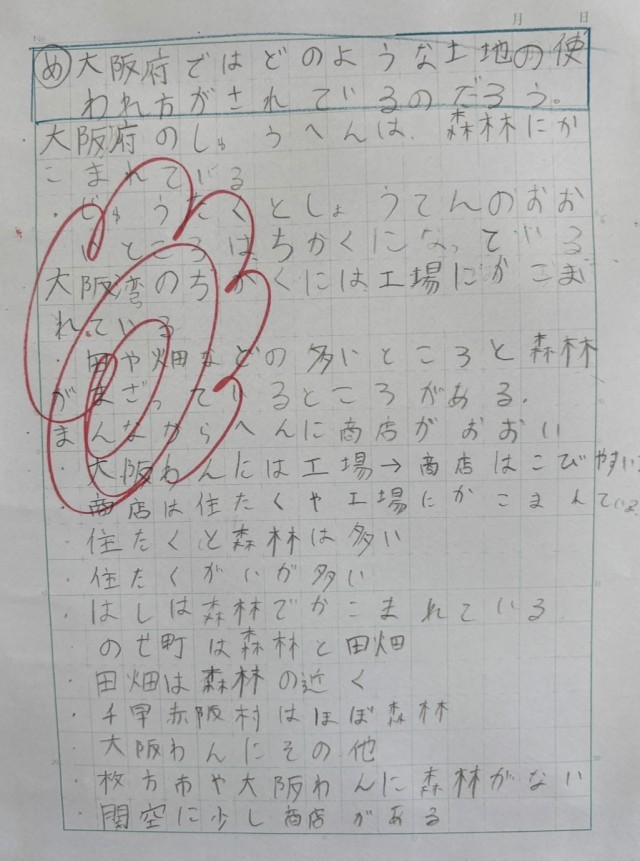 月 日
め 大阪府ではどのような土地の使
われ方がされているのだろう。
大阪府のしゅうへんは、森林にか
こまれている
・じゅうたくとしょうてんのおお
いところは、ちかくになっている
大阪湾のちかくには工場にかこま
れている
・田や畑などの多いところと森林
がまざっているところがある.
まんなからへんに商店がおおい
・大阪わんには工場→商店はこびやすい
・商店は住たくや工場にかこまんている
・住たくと森林は多い
・住たくがいが多い
・はしは森林でかこまれている
・のせ町は森林と田畑
・田畑は森林の近く
・千早赤阪村はほぼ森林
・大阪わんにその他
・枚方市や大阪わんに森林がない
・関空に少し商店がある